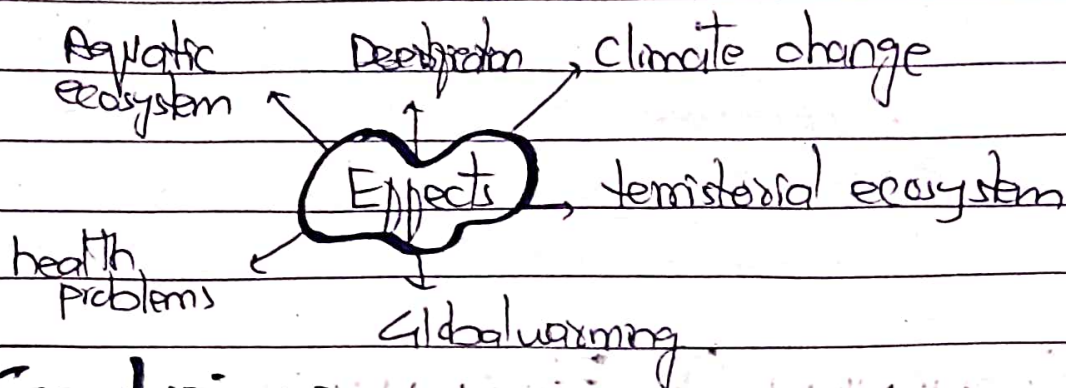 Aquatic
ecosystem
Climate change
Effects
temistorial ecosystem
health
problems
Global warming